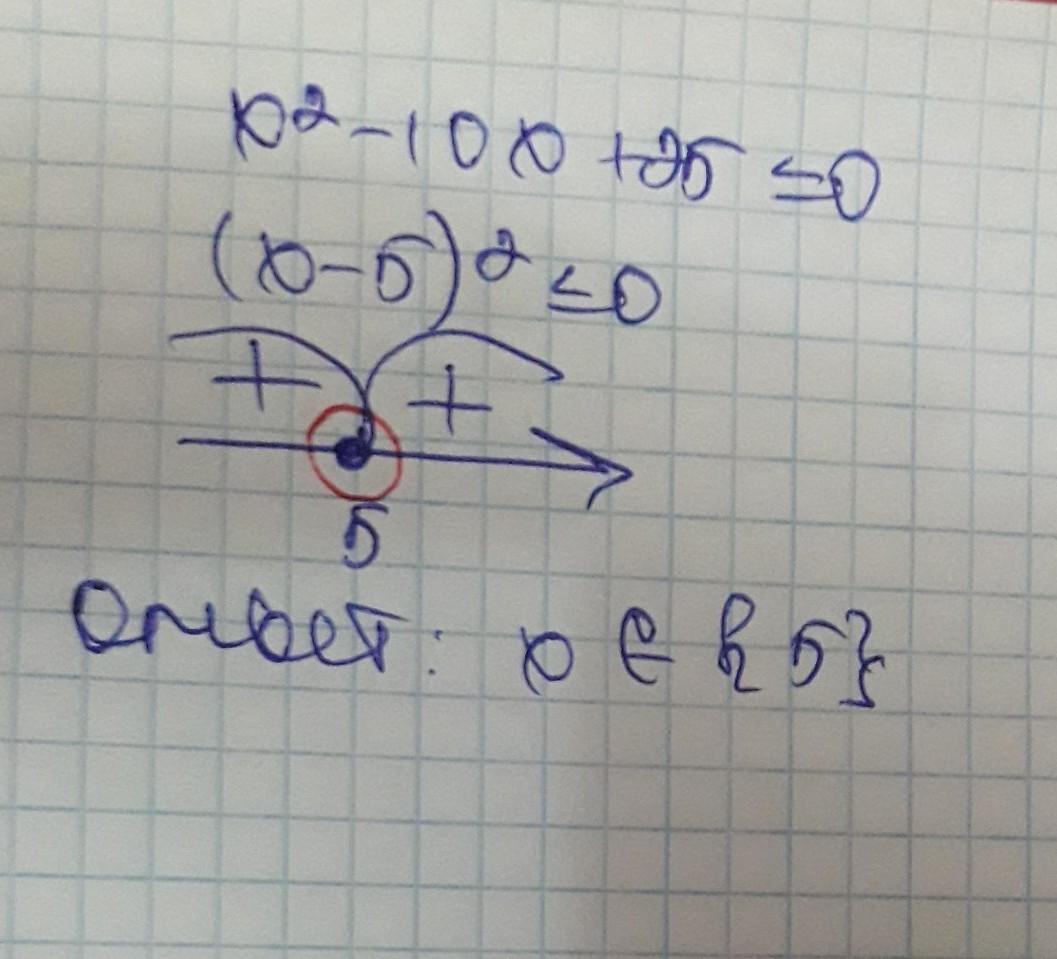 x² - 10x + 25 ≤ 0
(x - 5)² ≤ 0
+ +
5
Ответ: x ∈ {5}